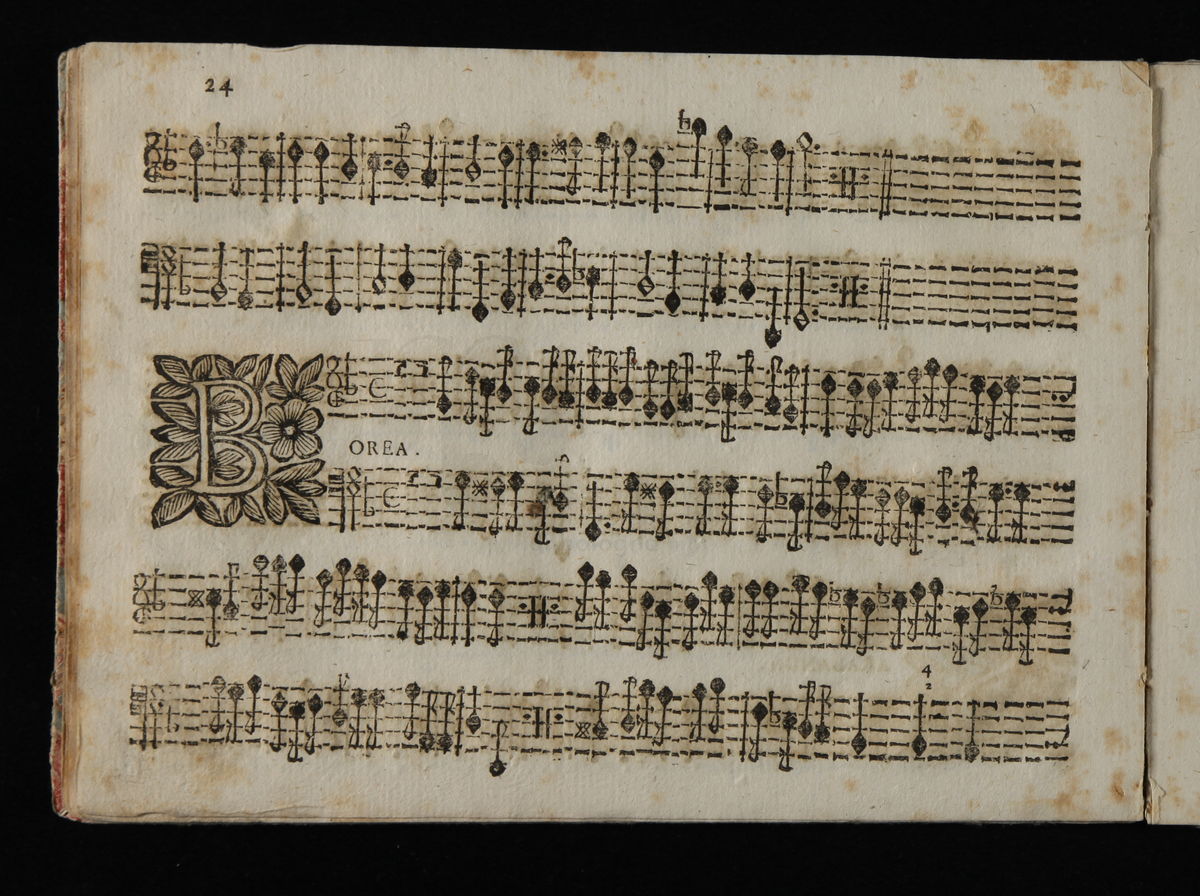 24
BOREA.
4
2